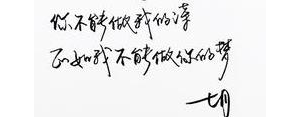 你不能做我的诗
正如我不能做你的梦
七月